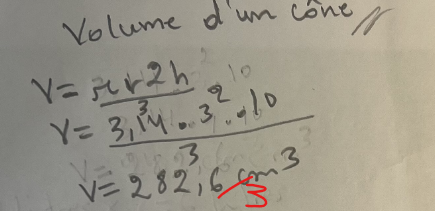 Volume d'un cône
V = πr2h
3
V = 3,14 · 3² · 10
3
V = 282,6 cm³
3